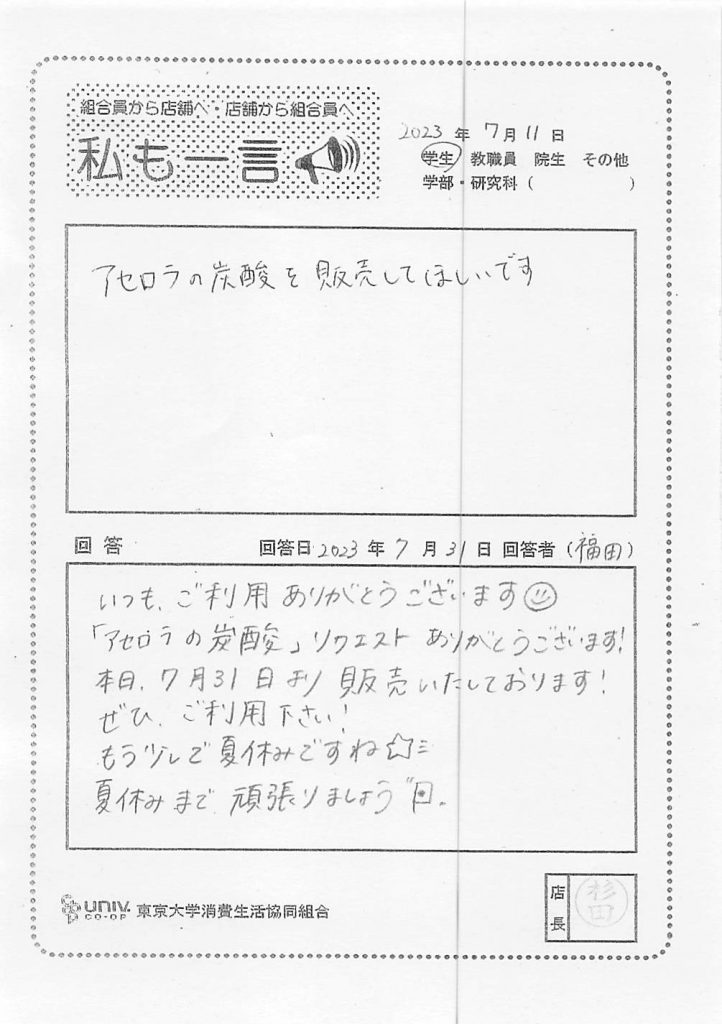 組合員から店舗へ・店舗から組合員へ
私も一言
2023 年 7月 11 日
学生 教職員 院生 その他
学部・研究科 ( )
アセロラの炭酸を販売してほしいです
回答 回答日 2023 年 7 月 31 日 回答者 (福田)
いつも、ご利用ありがとうございます
「アセロラの炭酸」リクエスト ありがとうございます!
本日、7月31日より 販売いたしております!
ぜひ、ご利用下さい!
もう少しで夏休みですね
夏休みまで 頑張りましょう
UNIV. CO-OP 東京大学消費生活協同組合
店長 杉田